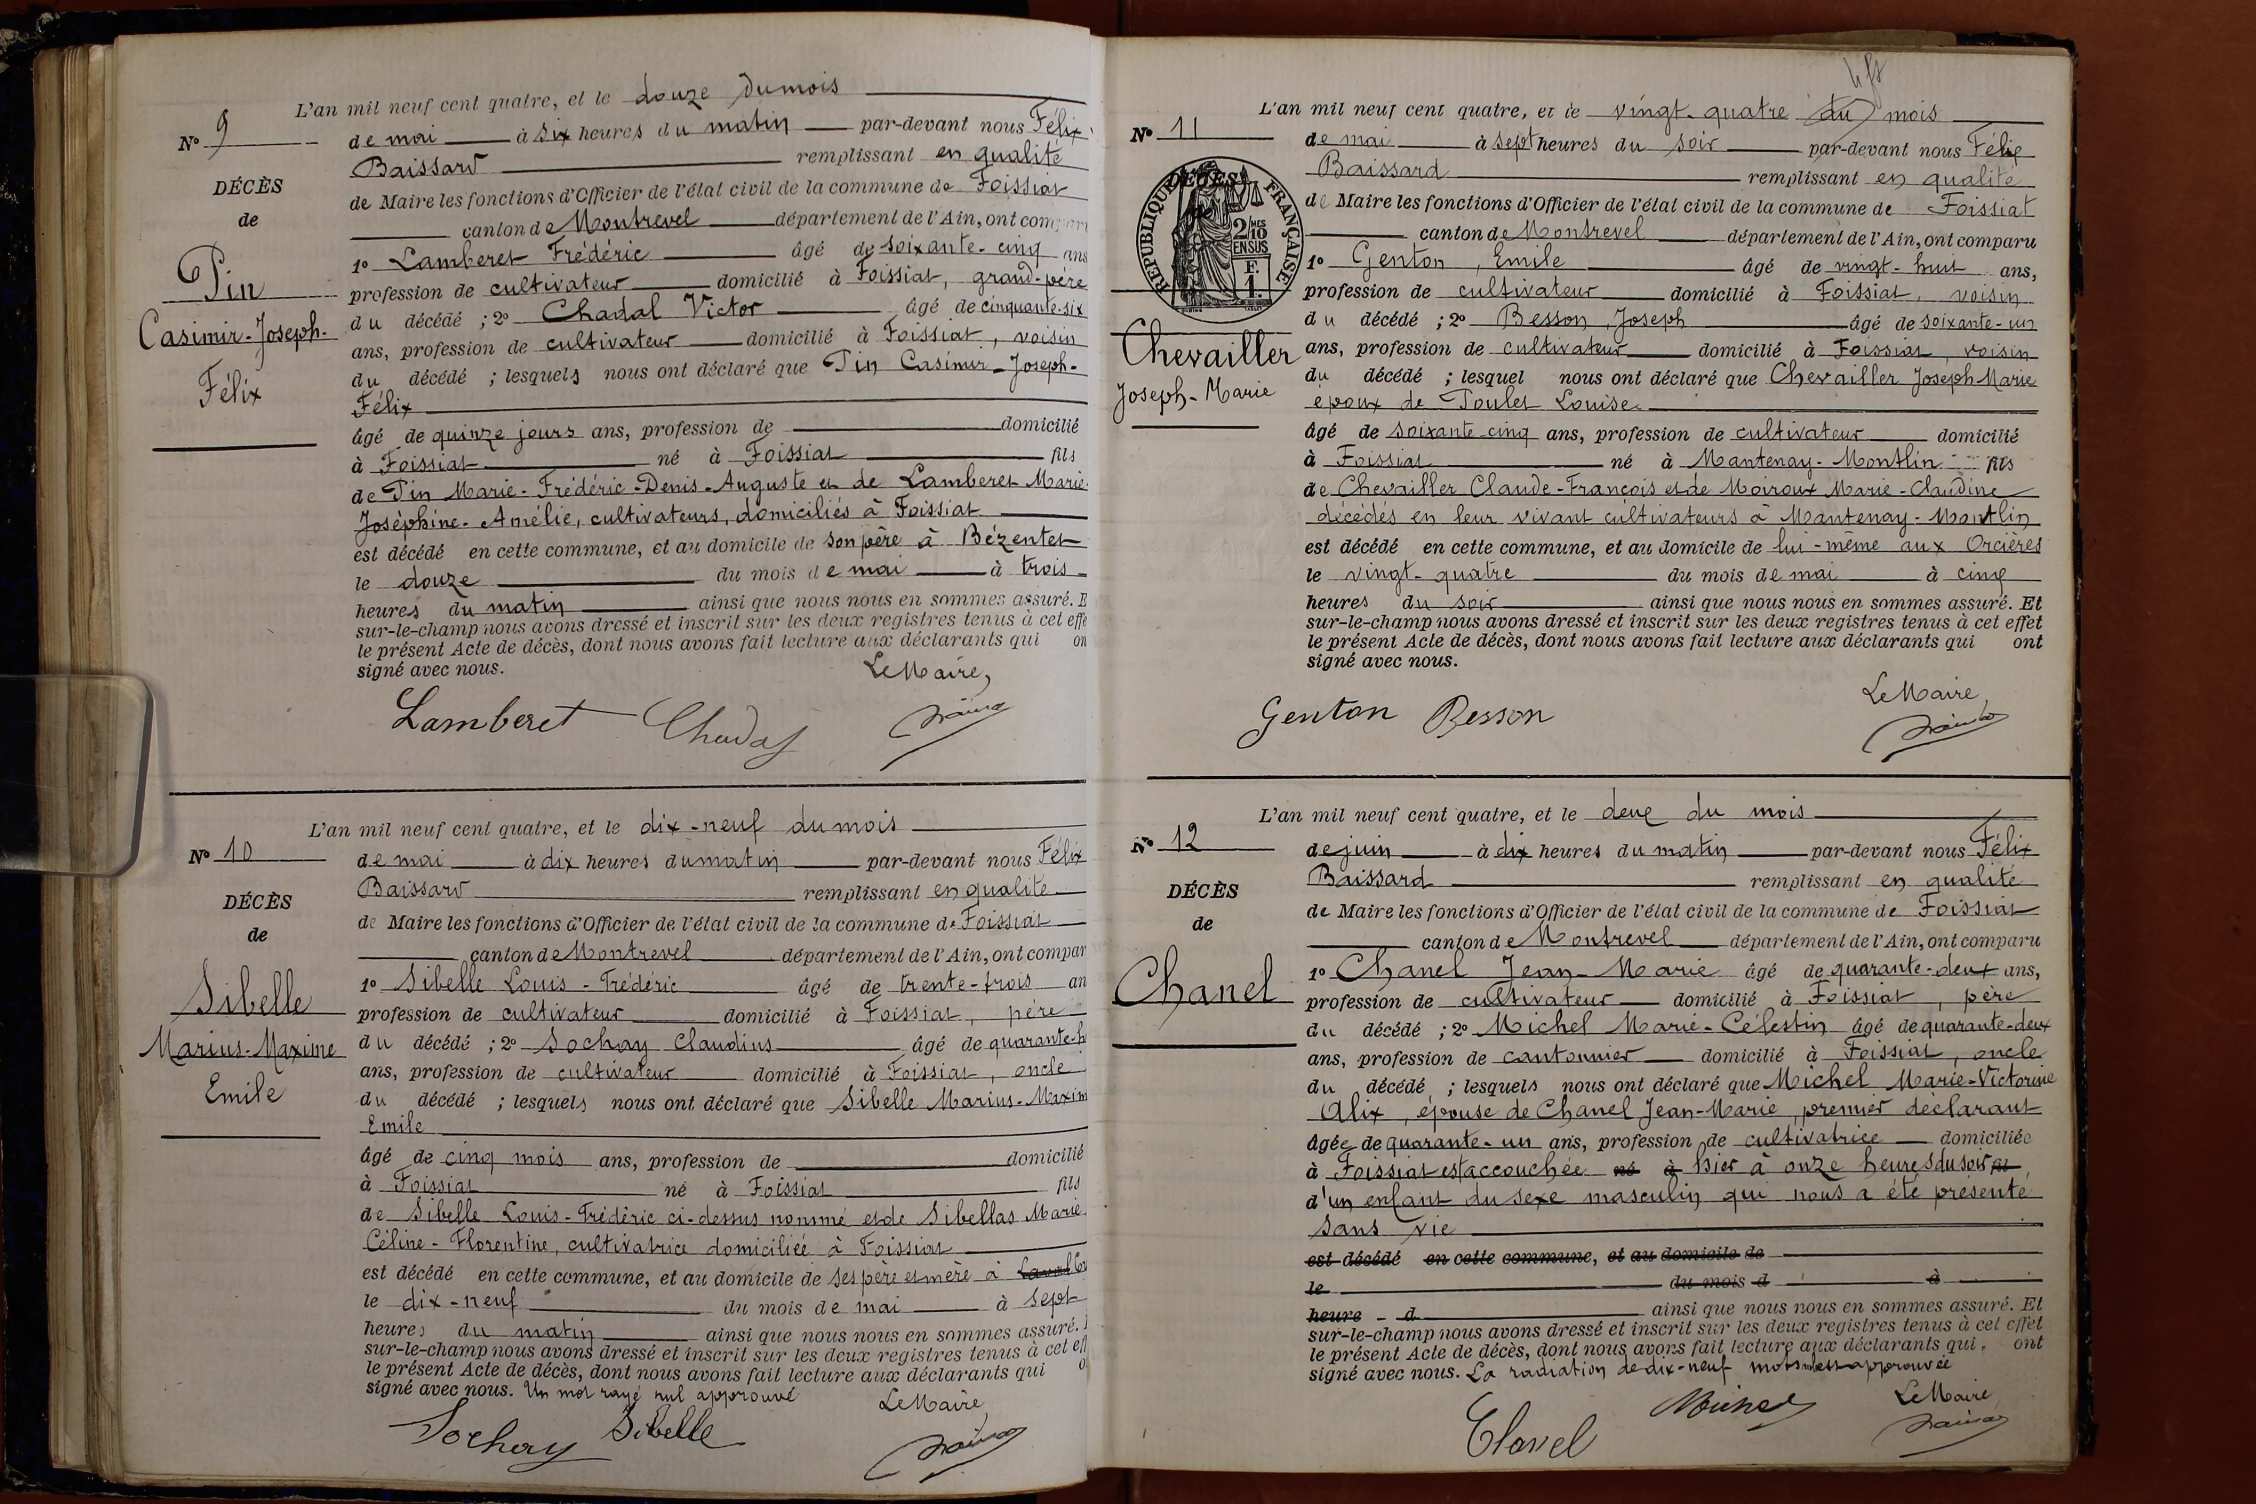 L'an mil neuf cent quatre, et le douze du mois
N° 9
de mai à six heures du matin par-devant nous Félix
Baissard remplissant en qualité
DÉCÈS
de Maire les fonctions d'Officier de l'état civil de la commune de Foissiat
de
canton de Montrevel département de l'Ain, ont comparu
1° Lamberet Frédéric âgé de soixante-cinq ans
Pin
profession de cultivateur domicilié à Foissiat, grand-père
Casimir-Joseph-
du décédé ; 2° Chadal Victor âgé de cinquante-six
ans, profession de cultivateur domicilié à Foissiat, voisin
Félix
du décédé ; lesquels nous ont déclaré que Pin Casimir-Joseph-
Félix
âgé de quinze jours ans, profession de domicilié
à Foissiat né à Foissiat fils
de Pin Marie-Frédéric-Denis-Auguste et de Lamberet Marie-
Joséphine-Amélie, cultivateurs, domiciliés à Foissiat
est décédé en cette commune, et au domicile de son père à Bézentet
le douze du mois de mai à trois
heures du matin ainsi que nous nous en sommes assuré. E
sur-le-champ nous avons dressé et inscrit sur les deux registres tenus à cet effe
le présent Acte de décès, dont nous avons fait lecture aux déclarants qui on
signé avec nous.
Le Maire,
Lamberet Chadal
L'an mil neuf cent quatre, et le dix-neuf du mois
N° 10
de mai à dix heures du matin par-devant nous Félix
Baissard remplissant en qualité
DÉCÈS
de Maire les fonctions d'Officier de l'état civil de la commune de Foissiat
de
canton de Montrevel département de l'Ain, ont compar
1° Sibelle Louis-Frédéric âgé de trente-trois an
Sibelle
profession de cultivateur domicilié à Foissiat, père
Marius-Maxime
du décédé ; 2° Sochay Claudius âgé de quarante-h
ans, profession de cultivateur domicilié à Foissiat, oncle
Emile
du décédé ; lesquels nous ont déclaré que Sibelle Marius-Maxim
Emile
âgé de cinq mois ans, profession de domicilié
à Foissiat né à Foissiat fils
de Sibelle Louis-Frédéric ci-dessus nommé et de Sibellas Marie
Céline-Florentine, cultivatrice domiciliée à Foissiat
est décédé en cette commune, et au domicile de ses père et mère à
le dix-neuf du mois de mai à sept
heures du matin ainsi que nous nous en sommes assuré.
sur-le-champ nous avons dressé et inscrit sur les deux registres tenus à cet eff
le présent Acte de décès, dont nous avons fait lecture aux déclarants qui o
signé avec nous. Un mot rayé nul approuvé
Le Maire,
Sochay Sibelle
L'an mil neuf cent quatre, et le vingt-quatre du mois
N° 11
de mai à sept heures du soir par-devant nous Félix
Baissard remplissant en qualité
RÉPUBLIQUE FRANÇAISE
2/10 EN SUS
F. 1.
de Maire les fonctions d'Officier de l'état civil de la commune de Foissiat
canton de Montrevel département de l'Ain, ont comparu
1° Genton, Emile âgé de vingt-huit ans,
profession de cultivateur domicilié à Foissiat, voisin
du décédé ; 2° Besson, Joseph âgé de soixante-un
Chevailler
ans, profession de cultivateur domicilié à Foissiat, voisin
Joseph-Marie
du décédé ; lesquel nous ont déclaré que Chevailler Joseph-Marie
époux de Poulet Louise
âgé de soixante-cinq ans, profession de cultivateur domicilié
à Foissiat né à Mantenay-Montlin fils
de Chevailler Claude-François et de Moiroux Marie-Claudine
décédés en leur vivant cultivateurs à Mantenay-Montlin
est décédé en cette commune, et au domicile de lui-même aux Orcières
le vingt-quatre du mois de mai à cinq
heures du soir ainsi que nous nous en sommes assuré. Et
sur-le-champ nous avons dressé et inscrit sur les deux registres tenus à cet effet
le présent Acte de décès, dont nous avons fait lecture aux déclarants qui ont
signé avec nous.
Le Maire,
Genton Besson
L'an mil neuf cent quatre, et le deux du mois
N° 12
de juin à dix heures du matin par-devant nous Félix
Baissard remplissant en qualité
DÉCÈS
de Maire les fonctions d'Officier de l'état civil de la commune de Foissiat
de
canton de Montrevel département de l'Ain, ont comparu
Chanel
1° Chanel Jean-Marie âgé de quarante-deux ans,
profession de cultivateur domicilié à Foissiat, père
du décédé ; 2° Michel Marie-Célestin âgé de quarante-deux
ans, profession de cantonnier domicilié à Foissiat, oncle
du décédé ; lesquels nous ont déclaré que Michel Marie-Victorine
Alix, épouse de Chanel Jean-Marie, premier déclarant
âgée de quarante-un ans, profession de cultivatrice domiciliée
à Foissiat est accouchée né à hier à onze heures du soir fils
d'un enfant du sexe masculin qui nous a été présenté
sans vie
est décédé en cette commune, et au domicile de
le du mois d à
heure d ainsi que nous nous en sommes assuré. Et
sur-le-champ nous avons dressé et inscrit sur les deux registres tenus à cet effet
le présent Acte de décès, dont nous avons fait lecture aux déclarants qui ont
signé avec nous. La radiation de dix-neuf mots est approuvée
Le Maire,
Chanel Michel